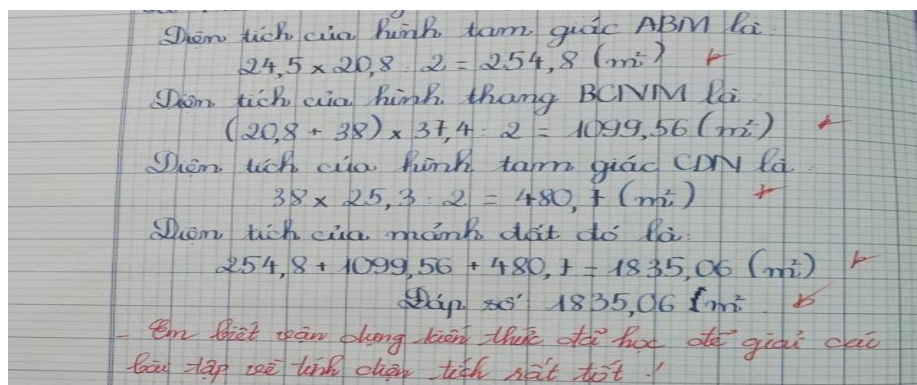 Diện tích của hình tam giác ABM là:
24,5 x 20,8 : 2 = 254,8 (m²)
Diện tích của hình thang BCNM là:
(20,8 + 38) x 37,4 : 2 = 1099,56 (m²)
Diện tích của hình tam giác CDN là:
38 x 25,3 : 2 = 480,7 (m²)
Diện tích của mảnh đất đó là:
254,8 + 1099,56 + 480,7 = 1835,06 (m²)
Đáp số: 1835,06 m²
- Em biết vận dụng kiến thức đã học để giải các
bài tập về tính diện tích rất tốt!